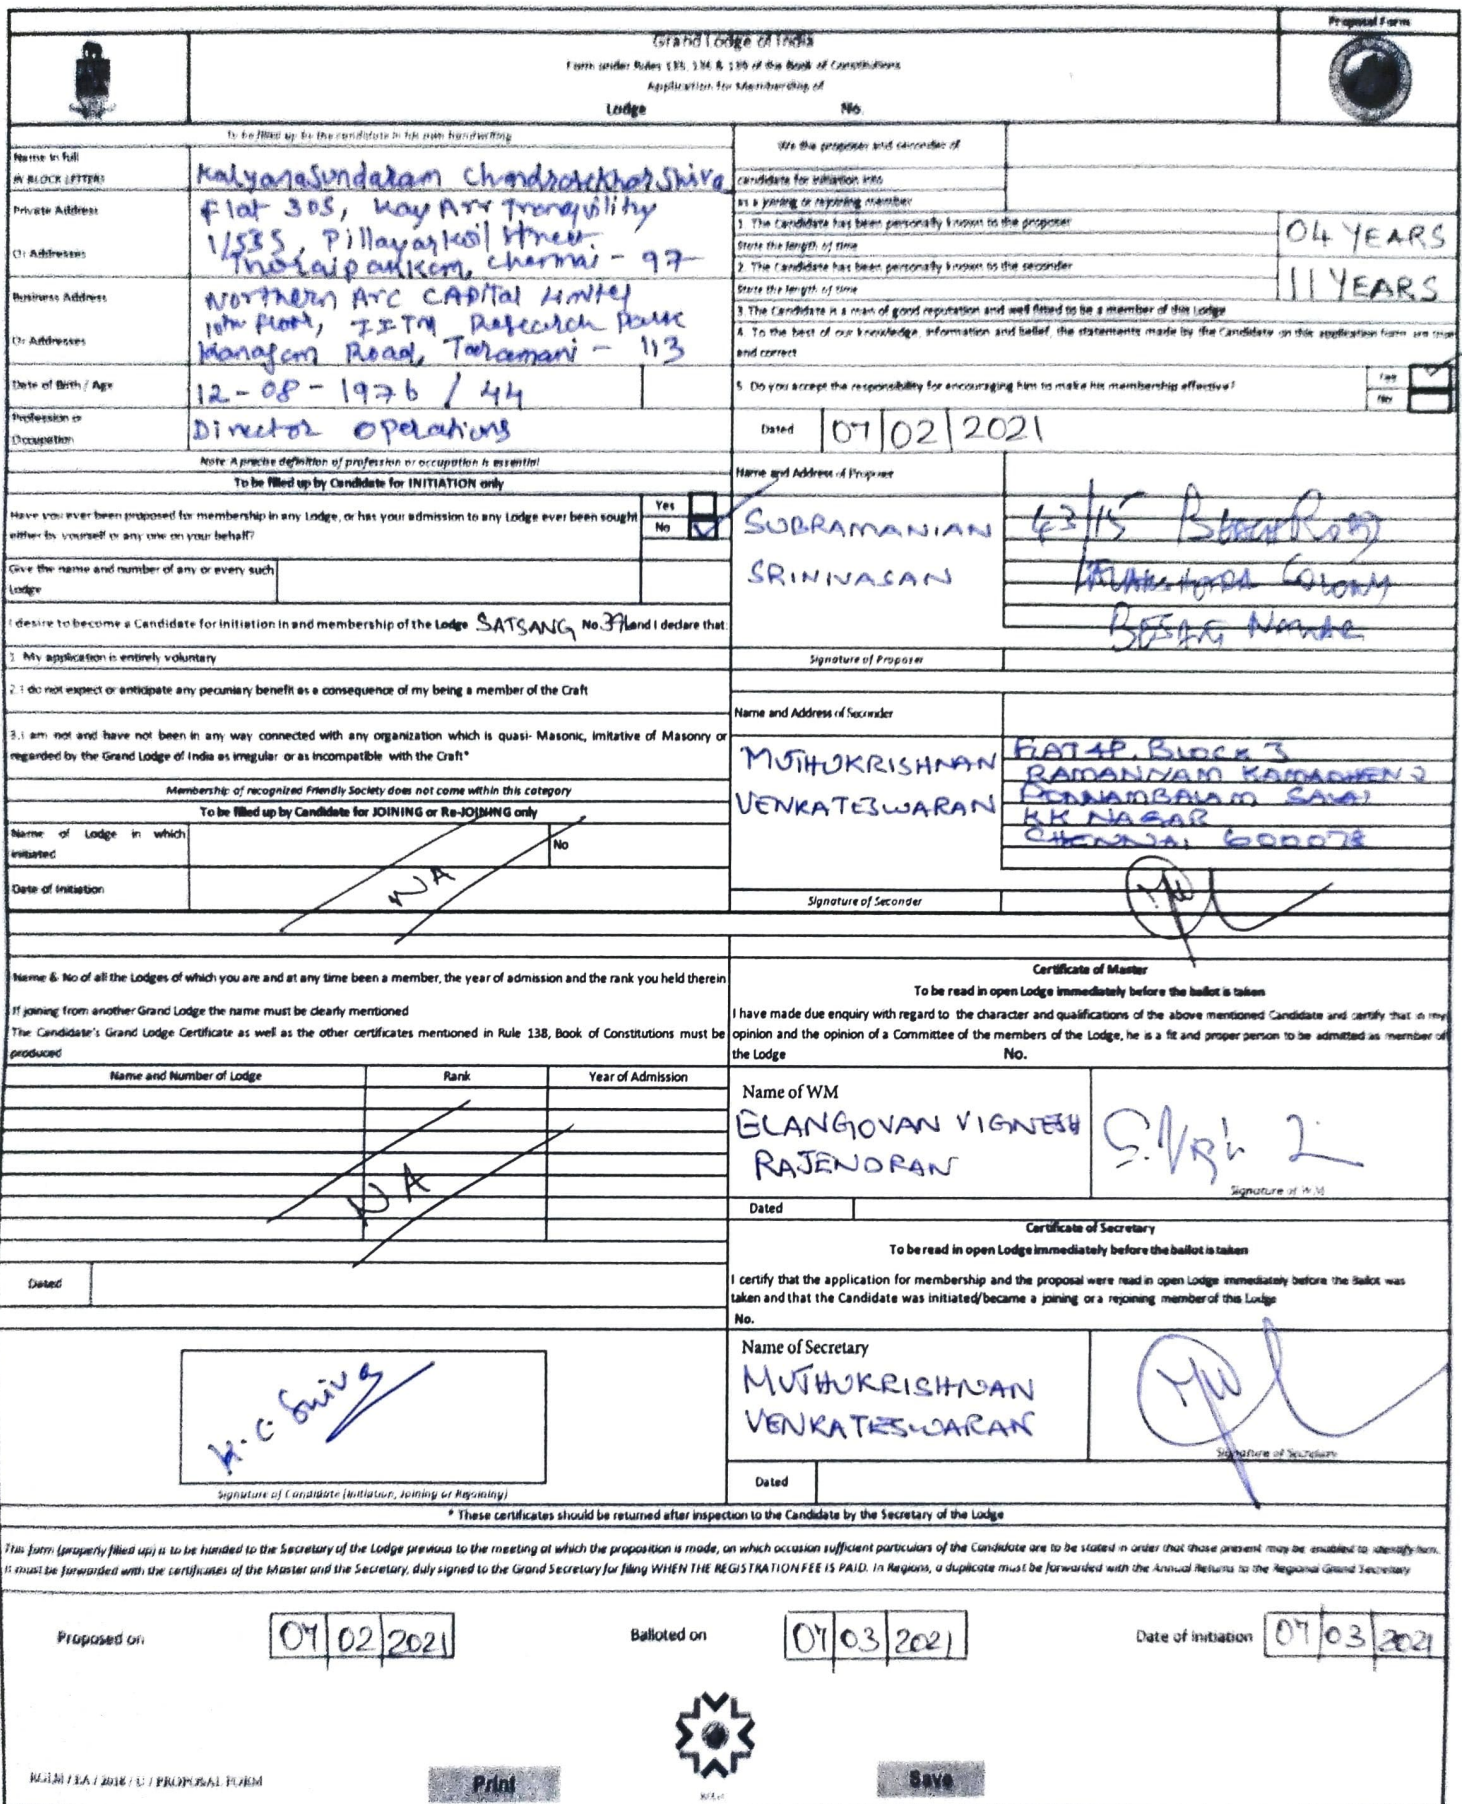 Proposal Form
Grand Lodge of India
Form under Rules 133, 134 & 139 of the Book of Constitutions
Application for Membership of
Lodge No.
To be filled up by the candidate in his own handwriting
Name in full
IN BLOCK LETTERS
Kalyanasundaram Chandrasekhar Shiva
Private Address
Or Addresses
Flat 305, Kay Arr Tranquility
1/535, Pillayarkoil Street,
Thoraipakkam, Chennai - 97
Business Address
Or Addresses
Northern Arc CAPITAL Limited
10th Floor, IITM Research Park
Kanagam Road, Taramani - 113
Date of Birth / Age
12-08-1976 / 44
Profession or
Occupation
Director Operations
Note A precise definition of profession or occupation is essential
To be filled up by Candidate for INITIATION only
Have you ever been proposed for membership in any Lodge, or has your admission to any Lodge ever been sought
either by yourself or any one on your behalf?
Yes
No
Give the name and number of any or every such
Lodge
I desire to become a Candidate for Initiation in and membership of the Lodge SATSANG No. and I declare that:
1. My application is entirely voluntary
2. I do not expect or anticipate any pecuniary benefit as a consequence of my being a member of the Craft
3. I am not and have not been in any way connected with any organization which is quasi- Masonic, imitative of Masonry or
regarded by the Grand Lodge of India as irregular or as incompatible with the Craft*
Membership of recognized Friendly Society does not come within this category
To be filled up by Candidate for JOINING or Re-JOINING only
Name of Lodge in which
initiated
No
Date of Initiation
NA
Name & No of all the Lodges of which you are and at any time been a member, the year of admission and the rank you held therein
If joining from another Grand Lodge the name must be clearly mentioned
The Candidate's Grand Lodge Certificate as well as the other certificates mentioned in Rule 138, Book of Constitutions must be
produced
Name and Number of Lodge Rank Year of Admission
NA
Dated
K.C. Shiva
Signature of Candidate (Initiation, Joining or Rejoining)
We the proposer and seconder of
candidate for initiation into
as a joining or rejoining member
1. The Candidate has been personally known to the proposer
State the length of time
04 YEARS
2. The Candidate has been personally known to the seconder
State the length of time
11 YEARS
3. The Candidate is a man of good reputation and well fitted to be a member of this Lodge
4. To the best of our knowledge, information and belief, the statements made by the Candidate on this application form are true
and correct
5. Do you accept the responsibility for encouraging him to make his membership effective?
Yes
No
Dated 07 02 2021
Name and Address of Proposer
SUBRAMANIAN
SRINIVASAN
43/15
Colony
Signature of Proposer
Name and Address of Seconder
MUTHUKRISHNAN
VENKATESWARAN
FLAT 4P, BLOCK 3
RAMANNAM KAMADHEN 2
PONNAMBALAM SALAI
KK NAGAR
CHENNAI 600078
Signature of Seconder
Certificate of Master
To be read in open Lodge immediately before the ballot is taken
I have made due enquiry with regard to the character and qualifications of the above mentioned Candidate and certify that in my
opinion and the opinion of a Committee of the members of the Lodge, he is a fit and proper person to be admitted as member of
the Lodge No.
Name of WM
ELANGOVAN VIGNESH
RAJENDRAN
Signature of WM
Dated
Certificate of Secretary
To be read in open Lodge immediately before the ballot is taken
I certify that the application for membership and the proposal were read in open Lodge immediately before the Ballot was
taken and that the Candidate was initiated/became a joining or a rejoining member of this Lodge
No.
Name of Secretary
MUTHUKRISHNAN
VENKATESWARAN
Signature of Secretary
Dated
* These certificates should be returned after inspection to the Candidate by the Secretary of the Lodge
This form (properly filled up) is to be handed to the Secretary of the Lodge previous to the meeting at which the proposition is made, on which occasion sufficient particulars of the Candidate are to be stated in order that those present may be enabled to identify him.
It must be forwarded with the certificates of the Master and the Secretary, duly signed to the Grand Secretary for filing WHEN THE REGISTRATION FEE IS PAID. In Regions, a duplicate must be forwarded with the Annual Returns to the Regional Grand Secretary
Proposed on 07 02 2021
Balloted on 07 03 2021
Date of Initiation 07 03 2021
RGLM / EA / 2018 / U / PROPOSAL FORM
Print
Save